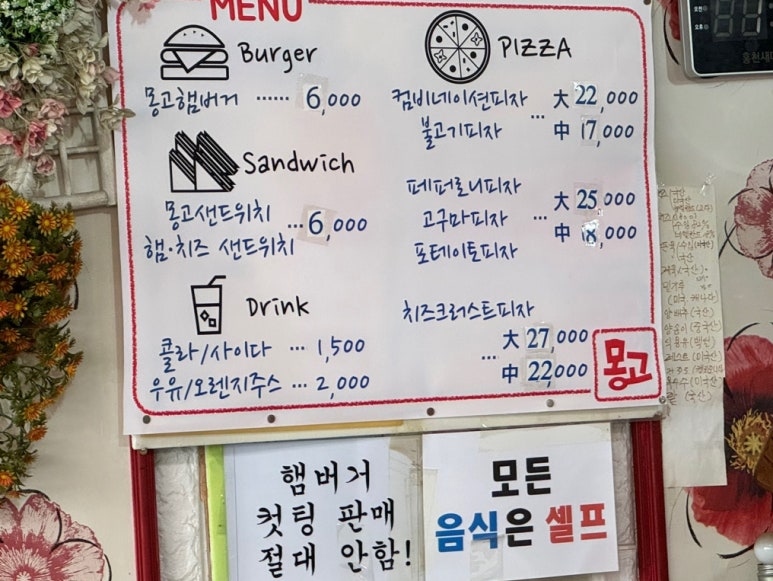 MENU
Burger
몽고햄버거 ...... 6,000
Sandwich
몽고샌드위치
햄·치즈 샌드위치 ... 6,000
Drink
콜라/사이다 ... 1,500
우유/오렌지주스 ... 2,000
PIZZA
컴비네이션피자
불고기피자
... 大 22,000
中 17,000
페퍼로니피자
고구마피자
포테이토피자
... 大 25,000
中 18,000
치즈크러스트피자
... 大 27,000
中 22,000
몽고
햄버거
컷팅 판매
절대 안함!
모든
음식은 셀프